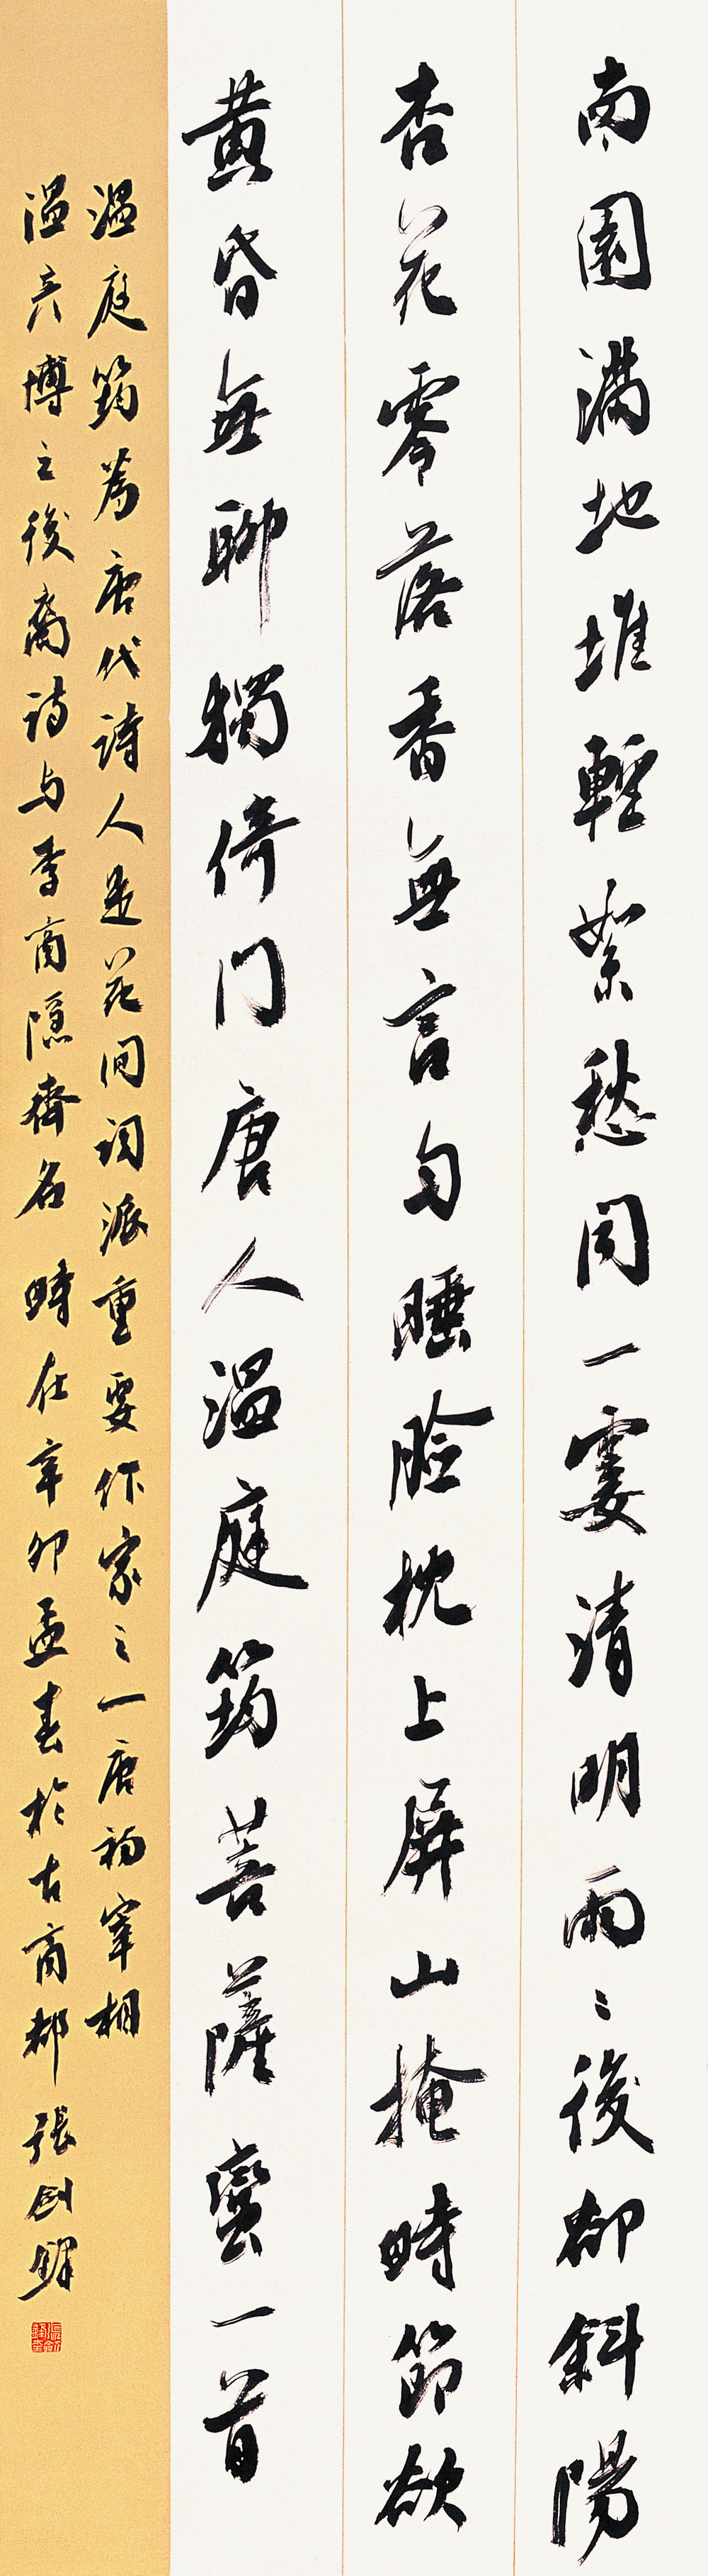 南園滿地堆輕絮愁聞一霎清明雨〻後却斜陽
杏花零落香無言勻睡臉枕上屏山掩時節欲
黃昏無聊獨倚门唐人温庭筠菩薩蠻一首
温庭筠為唐代詩人是花间词派重要作家之一唐初宰相
温彦博之後裔诗与李商隱齊名 時在辛卯孟春於古商都 張剑